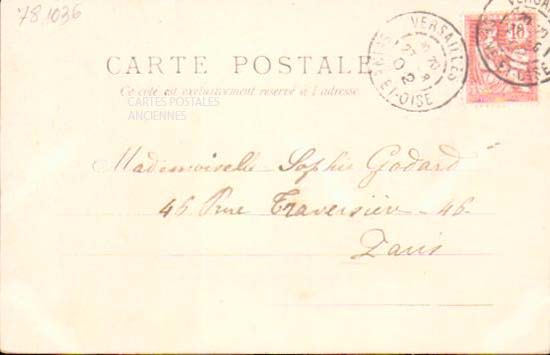 781036
CARTE POSTALE
Ce côté est exclusivement réservé à l'adresse.
CARTES POSTALES
ANCIENNES
VERSAILLES
SEINE-ET-OISE
Mademoiselle Sophie Godard
46 Rue Traversière 46
Paris